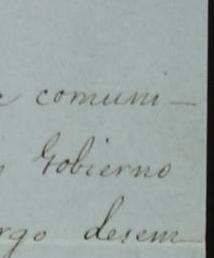 comuni-
Gobierno
rgo desem